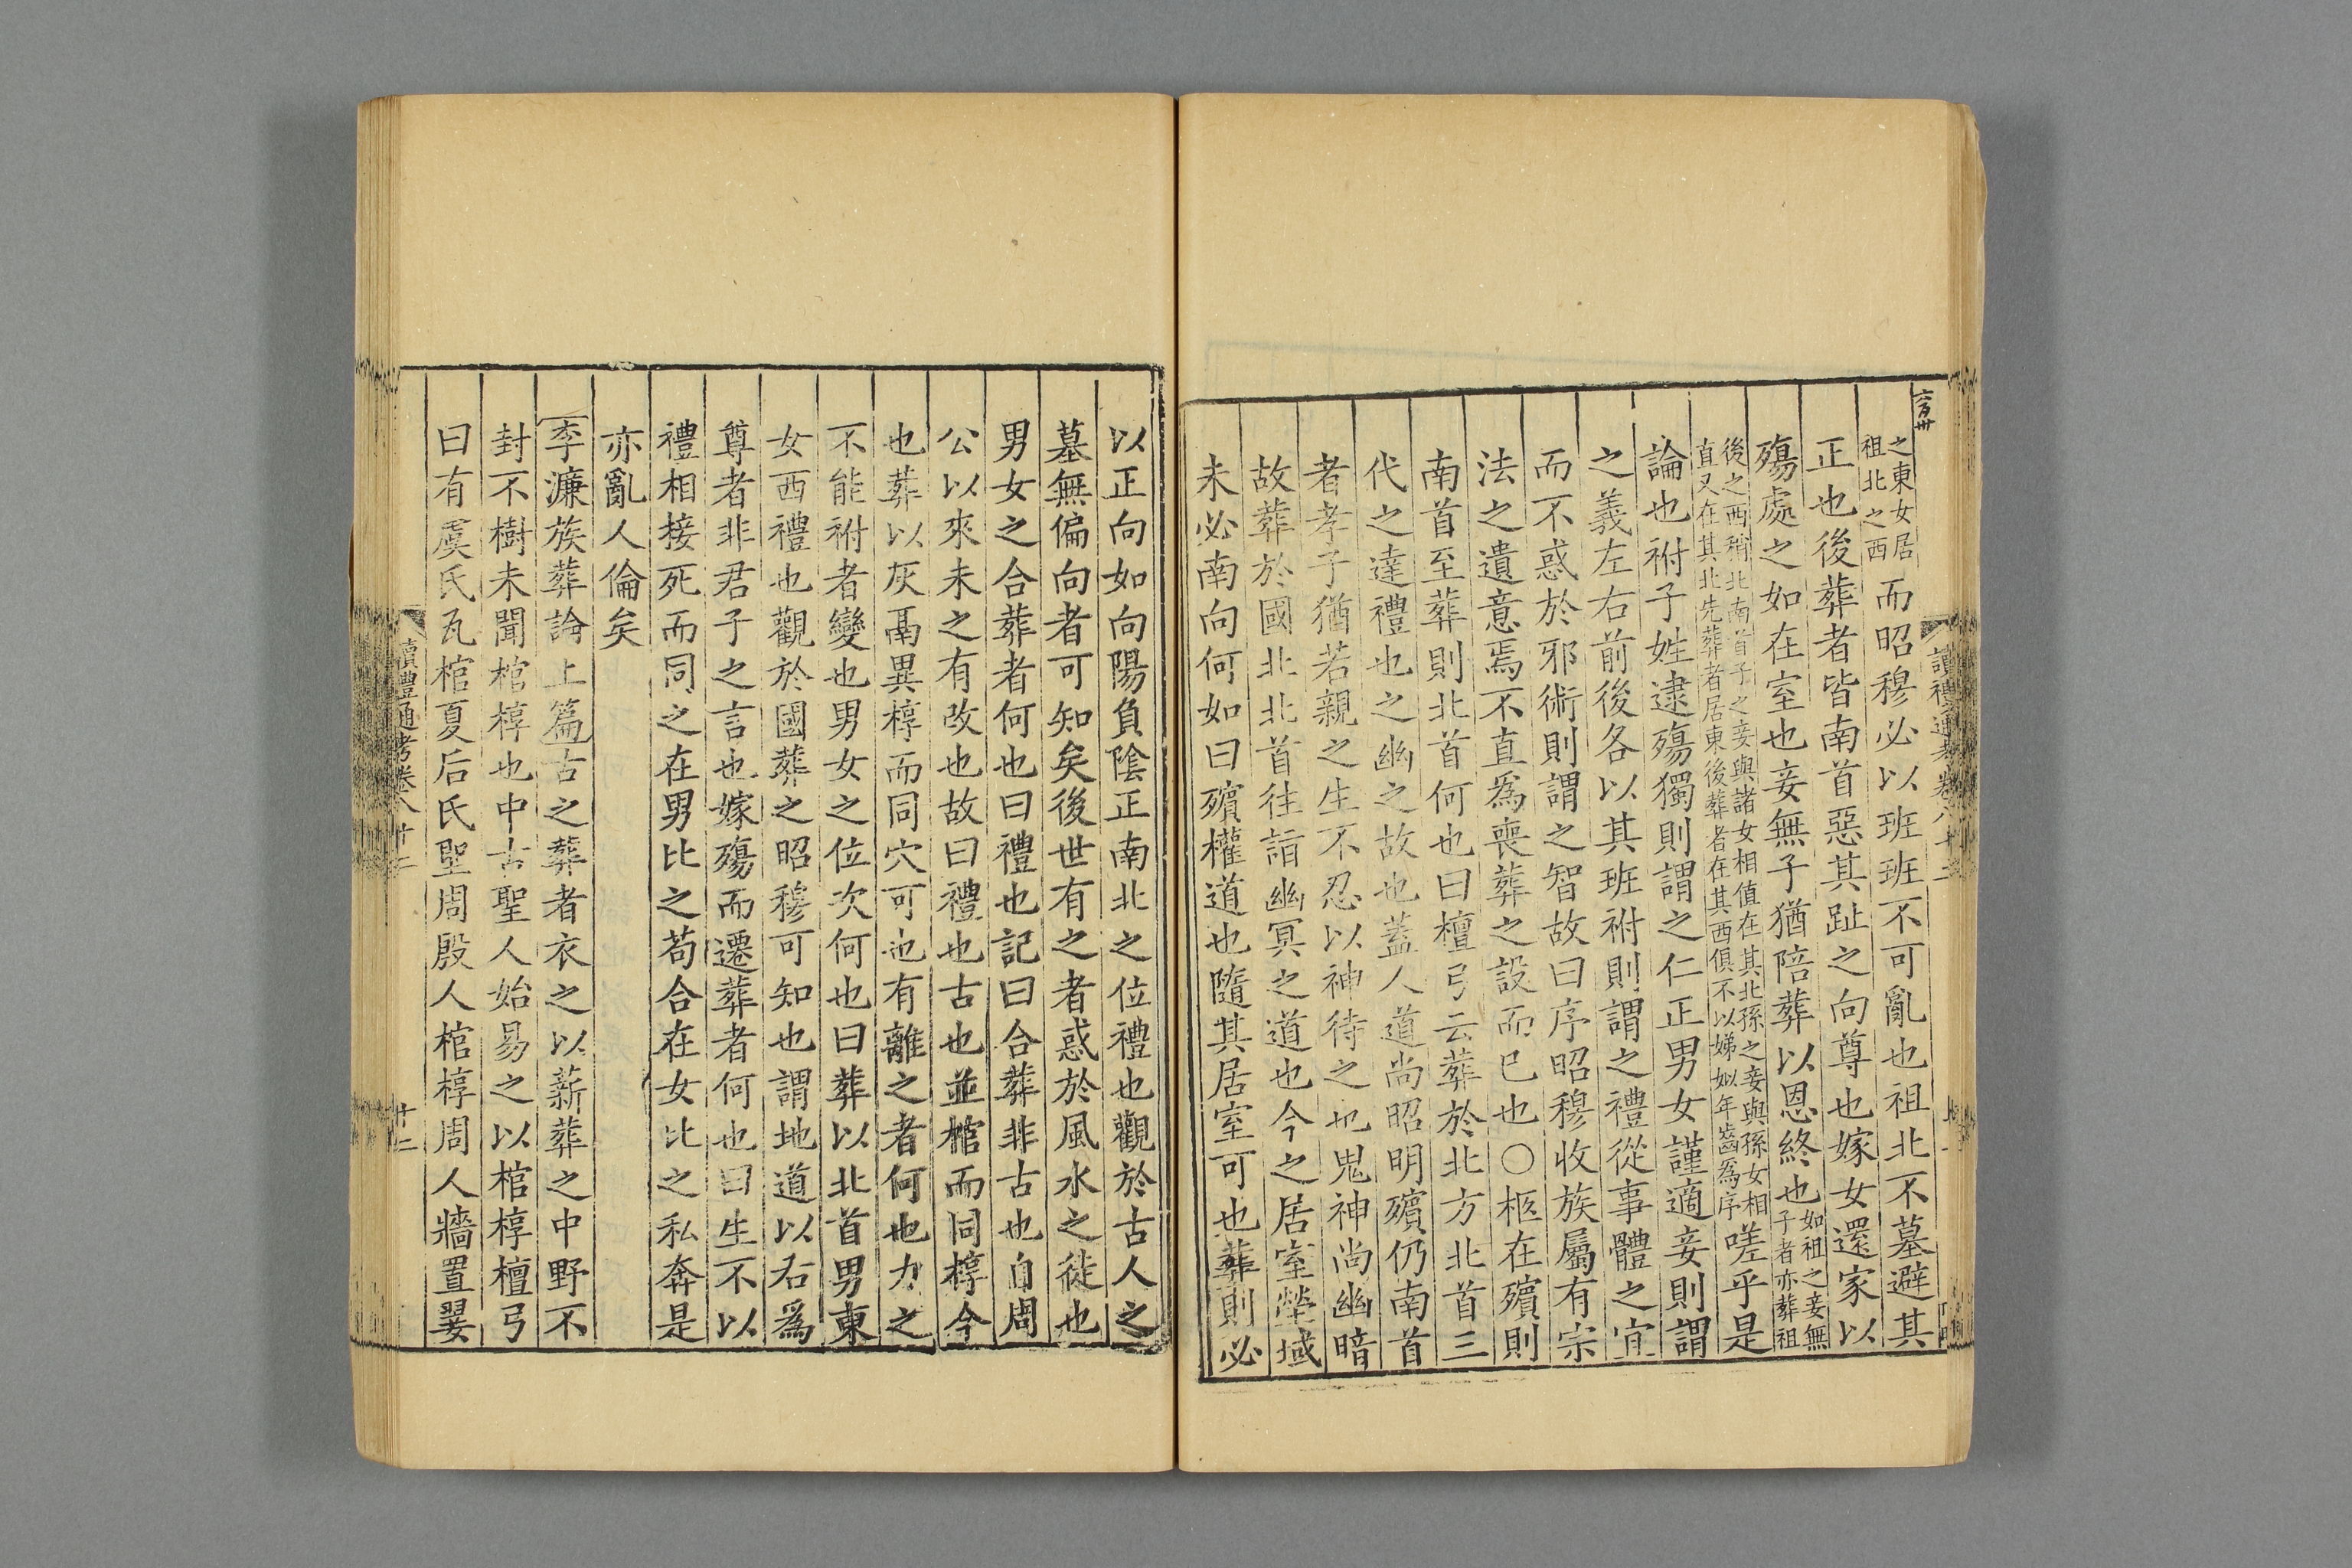 之東女居祖北之西而昭穆必以班班不可亂也祖北不墓避其
正也後葬者皆南首惡其趾之向尊也嫁女還家以
殤處之如在室也妾無子猶陪葬以恩終也如祖之妾無子者亦葬祖
後之西稍北南首子之妾與諸女相值在其北孫之妾與孫女相直又在其北先葬者居東後葬者在其西俱不以娣姒年齒爲序嗟乎是
論也祔子姓逮殤獨則謂之仁正男女謹適妾則謂
之義左右前後各以其班祔則謂之禮從事體之宜
而不惑於邪術則謂之智故曰序昭穆收族屬有宗
法之遺意焉不直爲喪葬之設而已也○柩在殯則
南首至葬則北首何也曰檀弓云葬於北方北首三
代之達禮也之幽之故也蓋人道尚昭明殯仍南首
者孝子猶若親之生不忍以神待之也鬼神尚幽暗
故葬於國北北首往詣幽冥之道也今之居室塋域
未必南向何如曰殯權道也隨其居室可也葬則必
以正向如向陽負陰正南北之位禮也觀於古人之
墓無偏向者可知矣後世有之者惑於風水之徒也
男女之合葬者何也曰禮也記曰合葬非古也自周
公以來未之有改也故曰禮也古也並棺而同椁今
也葬以灰鬲異椁而同穴可也有離之者何也力之
不能祔者變也男女之位次何也曰葬以北首男東
女西禮也觀於國葬之昭穆可知也謂地道以右爲
尊者非君子之言也嫁殤而遷葬者何也曰生不以
禮相接死而同之在男比之苟合在女比之私奔是
亦亂人倫矣
李濂族葬論上篇古之葬者衣之以薪葬之中野不
封不樹未聞棺椁也中古聖人始易之以棺椁檀弓
曰有虞氏瓦棺夏后氏堲周殷人棺椁周人牆置翣
讀禮通考卷八十二
十二